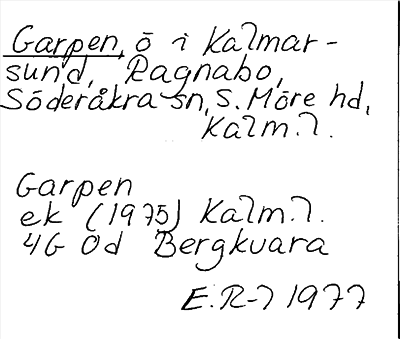 Garpen, ö i Kalmar-
sund, Ragnabo,
Söderåkra sn, S. Möre hd,
Kalm.l.
Garpen
ek (1975) Kalm.l.
4G 0d Bergkvara
E.R-l 1977